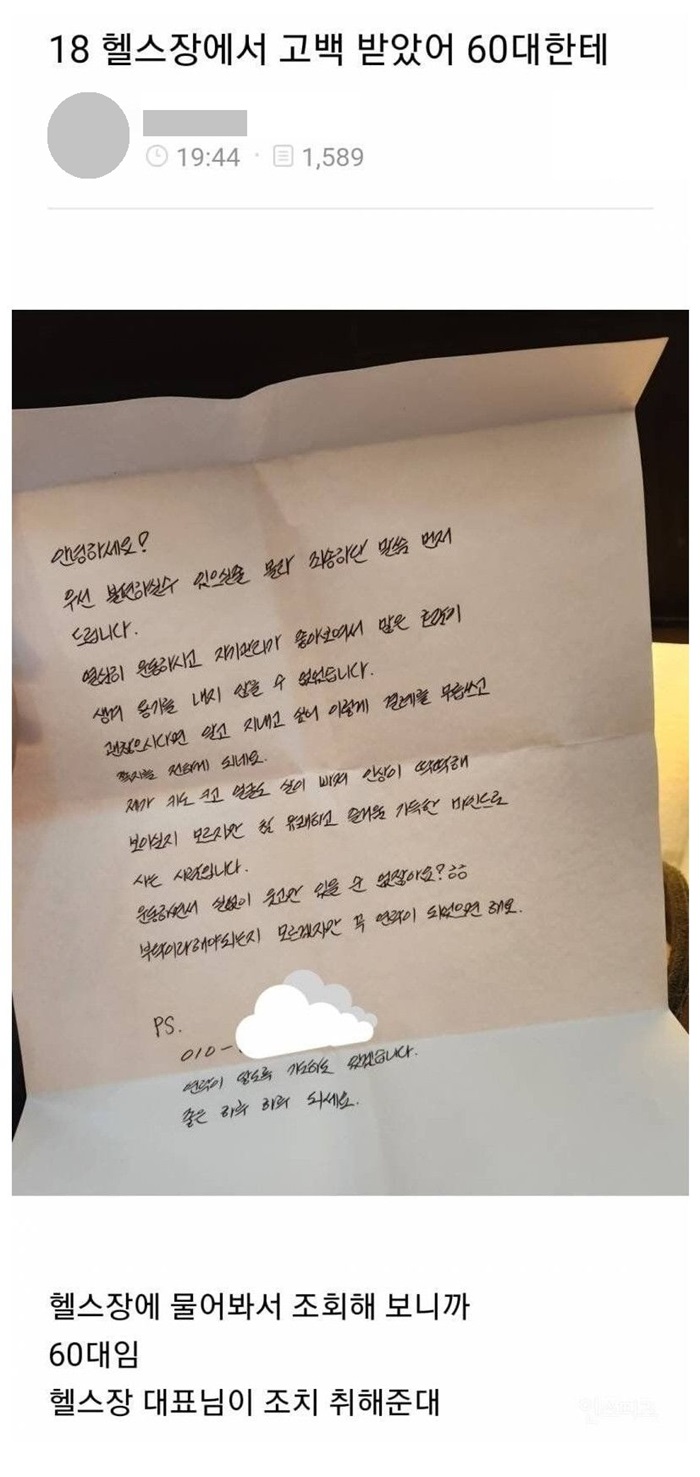 18 헬스장에서 고백 받았어 60대한테
19:44 · 1,589
안녕하세요?
우선 불편하실수 있으실줄 몰라 죄송하단 말씀 먼저
드립니다.
열심히 운동하시고 자기관리가 좋아보여서 많은 호감이
생겨 용기를 내지 않을 수 없었습니다.
괜찮으시다면 알고 지내고 싶어 이렇게 결례를 무릅쓰고
쪽지를 전하게 되네요.
제가 키도 크고 얼굴도 살이 빠져 인상이 딱딱해
보이실지 모르지만 참 유쾌하고 즐거움 가득한 마인드로
사는 사람입니다.
운동하면서 실없이 웃고만 있을 순 없잖아요?
부탁이라해야되는지 모르겠지만 꼭 연락이 되었으면 해요.
PS.
010-
연락이 않도록 기도하도 있겠습니다.
좋은 하루 하루 되세요.
헬스장에 물어봐서 조회해 보니까
60대임
헬스장 대표님이 조치 취해준대